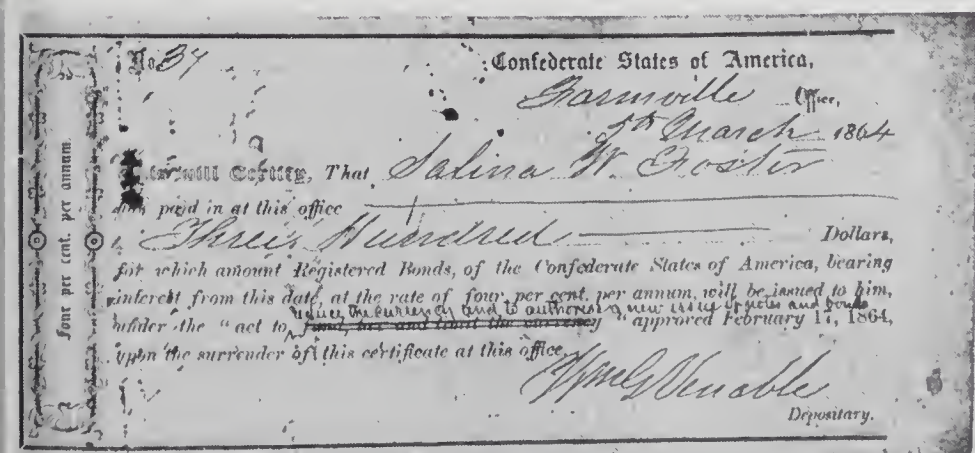 No. 37
Confederate States of America,
Farmville Office,
5th March 1864
This will Certify, That Salina W. Foster
has paid in at this office
Three Hundred Dollars,
for which amount Registered Bonds, of the Confederate States of America, bearing
interest from this date, at the rate of four per cent. per annum, will be issued to him,
reduce the currency and to authorise a new issue of notes and bonds
under the "act to fund, tax and limit the currency" approved February 17, 1864,
upon the surrender of this certificate at this office.
Wm G Venable
Depositary.
Four per cent. per annum.